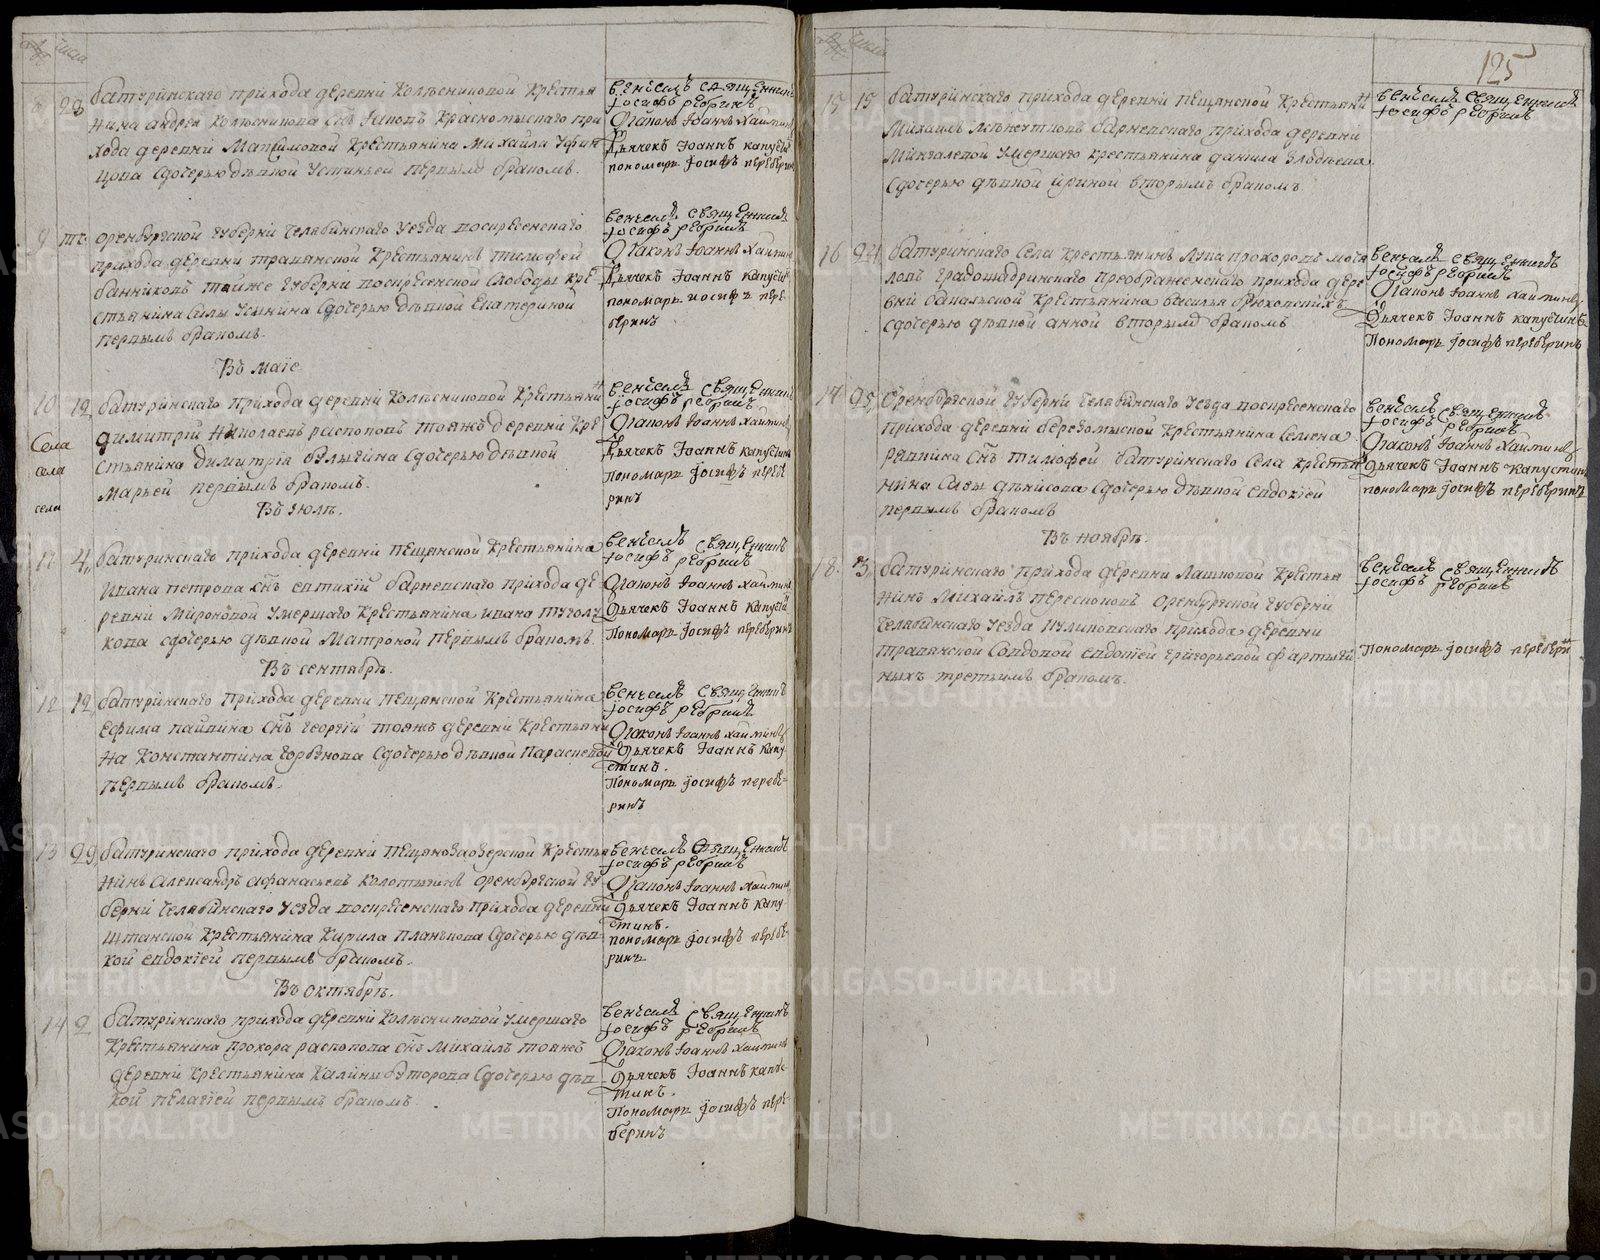 числа
8 28 батуринскаго прихода деревни Колѣсниковой Крестья
нина андрея Колѣсникова Снъ Красномыскаго при
хода деревни Максимовой Крестьянина Михайла
цова Сдочерью дѣвкой Устиньей первымъ бракомъ.
венчалъ священникъ
Іосифъ ребринъ
Діаконъ Іоаннъ
Дьячекъ Іоаннъ капустин
пономарь Іосифъ переберин
9 оренбургской губерни Челябинскаго уезда воскресенскаго
прихода деревни травянской Крестьянинъ тимофей
банниковъ тойже губерни воскресенской Слободы кре
стьянина Силы Усынина Сдочерью дѣвкой Екатериной
первымъ бракомъ.
венчалъ священникъ
Іосифъ ребринъ
Діаконъ Іоаннъ
Дьячекъ Іоаннъ капустин
пономарь иосифъ пере
беринъ
Въ маіе
10 19 батуринскаго прихода деревни Колѣсниковой Крестьянин
димитрій Николаевъ распоповъ тояжъ деревни Кре
стьянина димитрія булыгина Сдочерью дѣвкой
Марьей первымъ бракомъ.
Села
села
села
венчалъ священник
Іосифъ ребринъ
Діаконъ Іоаннъ
Дьячекъ Іоаннъ капустинъ
пономарь Іосифъ переб
ринъ
Въ Іюлѣ.
11 4 батуринскаго прихода деревни пещанской Крестьянина
ивана петрова Снъ евтихій барневскаго прихода де
ревни Мироновой умершаго Крестьянина ивана
кова сдочерью дѣвкой Матроной первымъ бракомъ.
венчалъ священникъ
Іосифъ ребринъ
Діаконъ Іоаннъ
Дьячекъ Іоаннъ капустин
Пономарь Іосифъ переберинъ
Въ сентябрѣ.
12 19 батуринскаго прихода деревни пещанской Крестьянина
Ефима пайвина Снъ георгій тояжъ деревни Крестьяни
на Константина горбунова Сдочерью дѣвкой Параскевой
первымъ бракомъ.
венчалъ священникъ
Іосифъ ребринъ
Діаконъ Іоаннъ
Дьячекъ Іоаннъ капу
стинъ.
Пономарь Іосифъ переве
ринъ
13 29 батуринскаго прихода деревни Крестья
нинъ Александръ афанасьевъ Колотыгинъ оренбургской гу
берни Челябинскаго уезда воскресенскаго прихода деревни
Крестьянина Кирила Сдочерью дѣв
кой евдокіей первымъ бракомъ.
венчалъ священникъ
Іосифъ ребринъ
Діаконъ Іоаннъ
Дьячекъ Іоаннъ капу
стинъ.
пономарь Іосифъ перебе
ринъ
Въ октябрѣ.
14 9 батуринскаго прихода деревни Колѣсниковой умершаго
Крестьянина прохора распопова Снъ Михайлъ тояжъ
деревни Крестьянина Калины Второва Сдочерью дѣв
кой пелагіей первымъ бракомъ.
венчалъ священникъ
Іосифъ ребринъ
Діаконъ Іоаннъ
Дьячекъ Іоаннъ капу
тинъ.
Пономарь Іосифъ пере
беринъ
125
числа
15 15 батуринскаго прихода деревни пещанской Крестьянин
Михаилъ барневскаго прихода деревни
Мингалевой умершаго крестьянина данила
Сдочерью дѣвкой Ириной вторымъ бракомъ
венчалъ священникъ
Іосифъ ребринъ
16 24 батуринскаго Села Крестьянинъ Лука прохоровъ
градошадринскаго преображенскаго прихода дере
вни бакальской Крестьянина василья
Сдочерью дѣвкой анной вторымъ бракомъ
венчалъ священникъ
Іосифъ ребринъ
Діаконъ Іоаннъ
Дьячекъ Іоаннъ капустинъ
Пономарь Іосифъ переберинъ
17 25 Оренбургской губерни Челябинскаго уезда воскресенскаго
прихода деревни Крестьянина Семена
рявкина Снъ тимофей батуринскаго Села Крестья
нина Савы дѣнисова Сдочерью дѣвкой евдокіей
первымъ бракомъ
венчалъ священникъ
Іосифъ ребринъ
Діаконъ Іоаннъ
Дьячекъ Іоаннъ капустин
пономарь Іосифъ переберинъ
Въ ноябрѣ.
18 3 батуринскаго прихода деревни Крестья
нинъ Михайлъ оренбургской губерни
Челябинскаго уезда прихода деревни
травянской Солдовой евдокіей григорьевой
ныхъ третьимъ бракомъ.
венчалъ священникъ
Іосифъ ребринъ
Пономарь Іосифъ переберин
METRIKI.GASO-URAL.RU